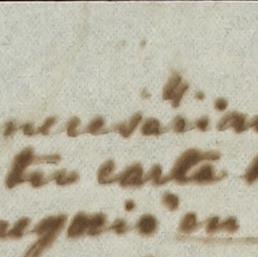 .4.
necesarian
tiu carta
negocio en